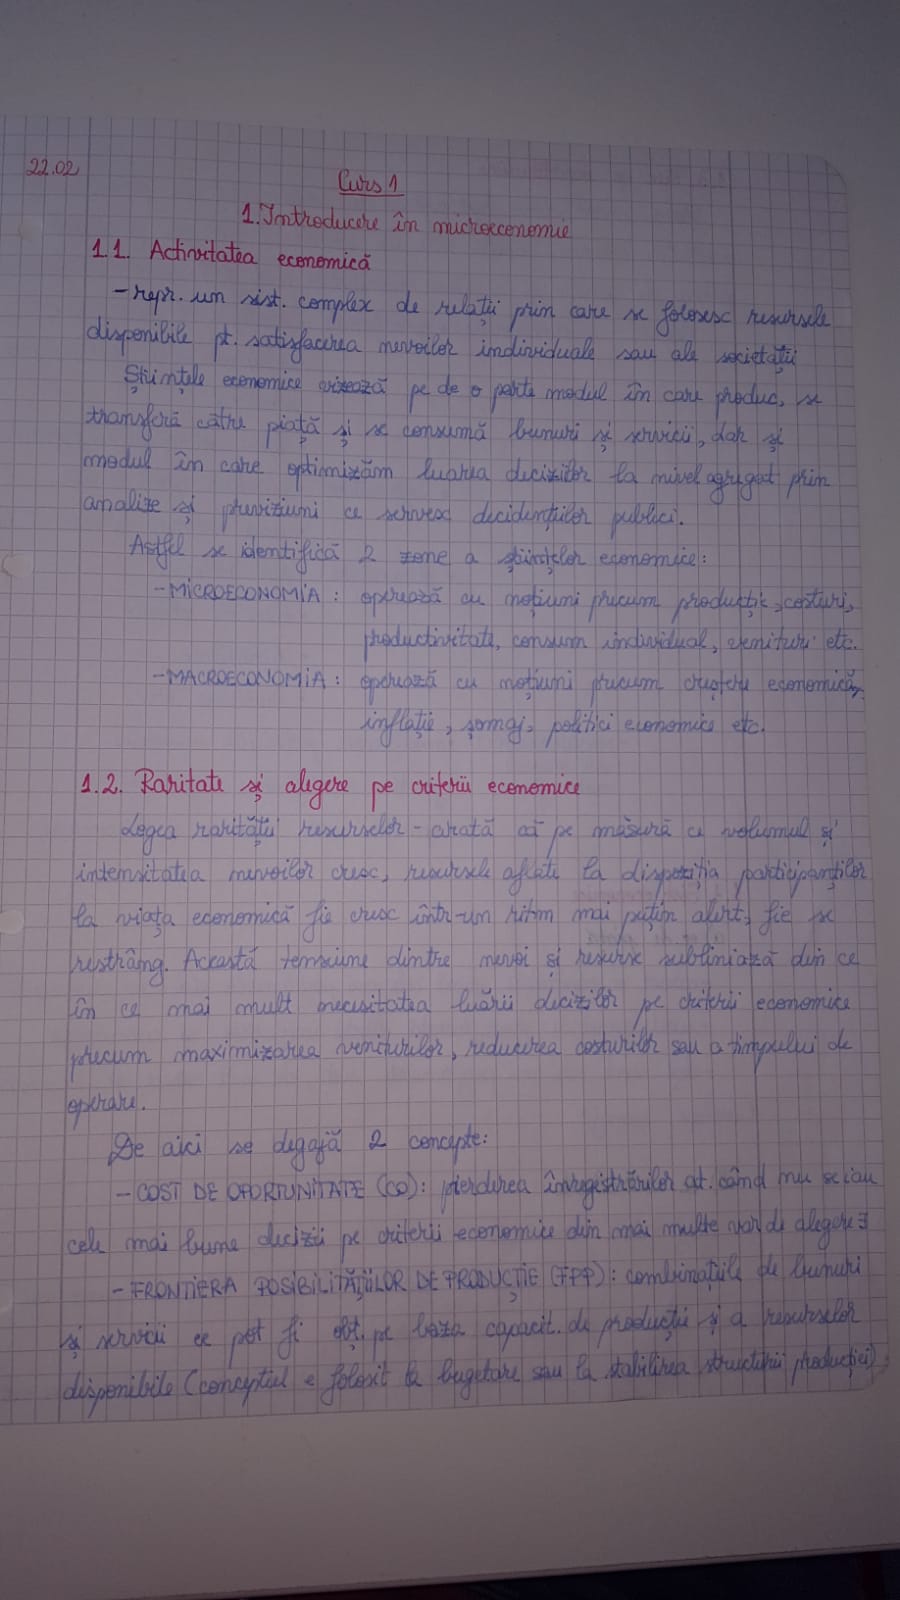 22.02
Curs 1
1. Introducere în microeconomie
1.1. Activitatea economică
- repr. un sist. complex de relații prin care se folosesc resursele
disponibile pt satisfacerea nevoilor individuale sau ale societății
Științele economice vizează pe de o parte modul în care produc, se
transferă către piață și se consumă bunuri și servicii, dar și
modul în care optimizăm luarea deciziilor la nivel agregat prin
analize și previziuni ce servesc decidenților publici.
Astfel se identifică 2 zone a științelor economice:
- MICROECONOMIA: operează cu noțiuni precum producție, costuri,
productivitate, consum individual, venituri etc.
- MACROECONOMIA: operează cu noțiuni precum creștere economică,
inflație, șomaj, politici economice etc.
1.2. Raritate și alegere pe criterii economice
Legea rarității resurselor - arată că pe măsură ce volumul și
intensitatea nevoilor cresc, resursele aflate la dispoziția participanților
la viața economică fie cresc într-un ritm mai puțin alert, fie se
restrâng. Această tensiune dintre nevoi și resurse subliniază din ce
în ce mai mult necesitatea luării deciziilor pe criterii economice
precum maximizarea veniturilor, reducerea costurilor sau a timpului de
operare.
De aici se degajă 2 concepte:
- COST DE OPORTUNITATE (CO): pierderea înregistrărilor at. când nu se iau
cele mai bune decizii pe criterii economice din mai multe var. de alegere Ǝ
- FRONTIERA POSIBILITĂȚIILOR DE PRODUCȚIE (FPP): combinațiile de bunuri
și servicii ce pot fi obț. pe baza capacit. de producție și a resurselor
disponibile (conceptul e folosit la bugetare sau la stabilirea structurii producției)